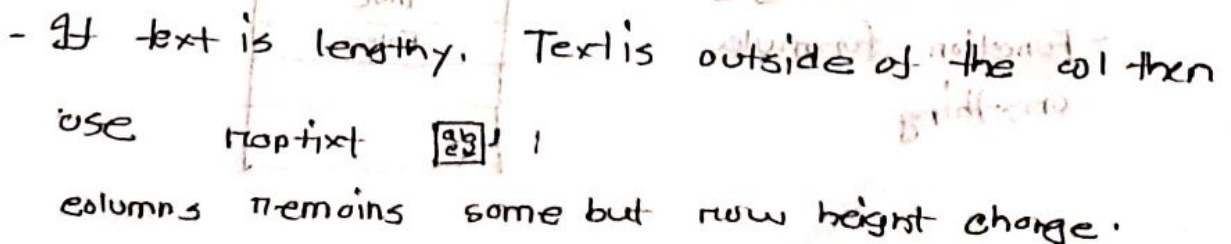 - If text is lengthy. Text is outside of the col then
use raptixt
columns remains same but row height change.